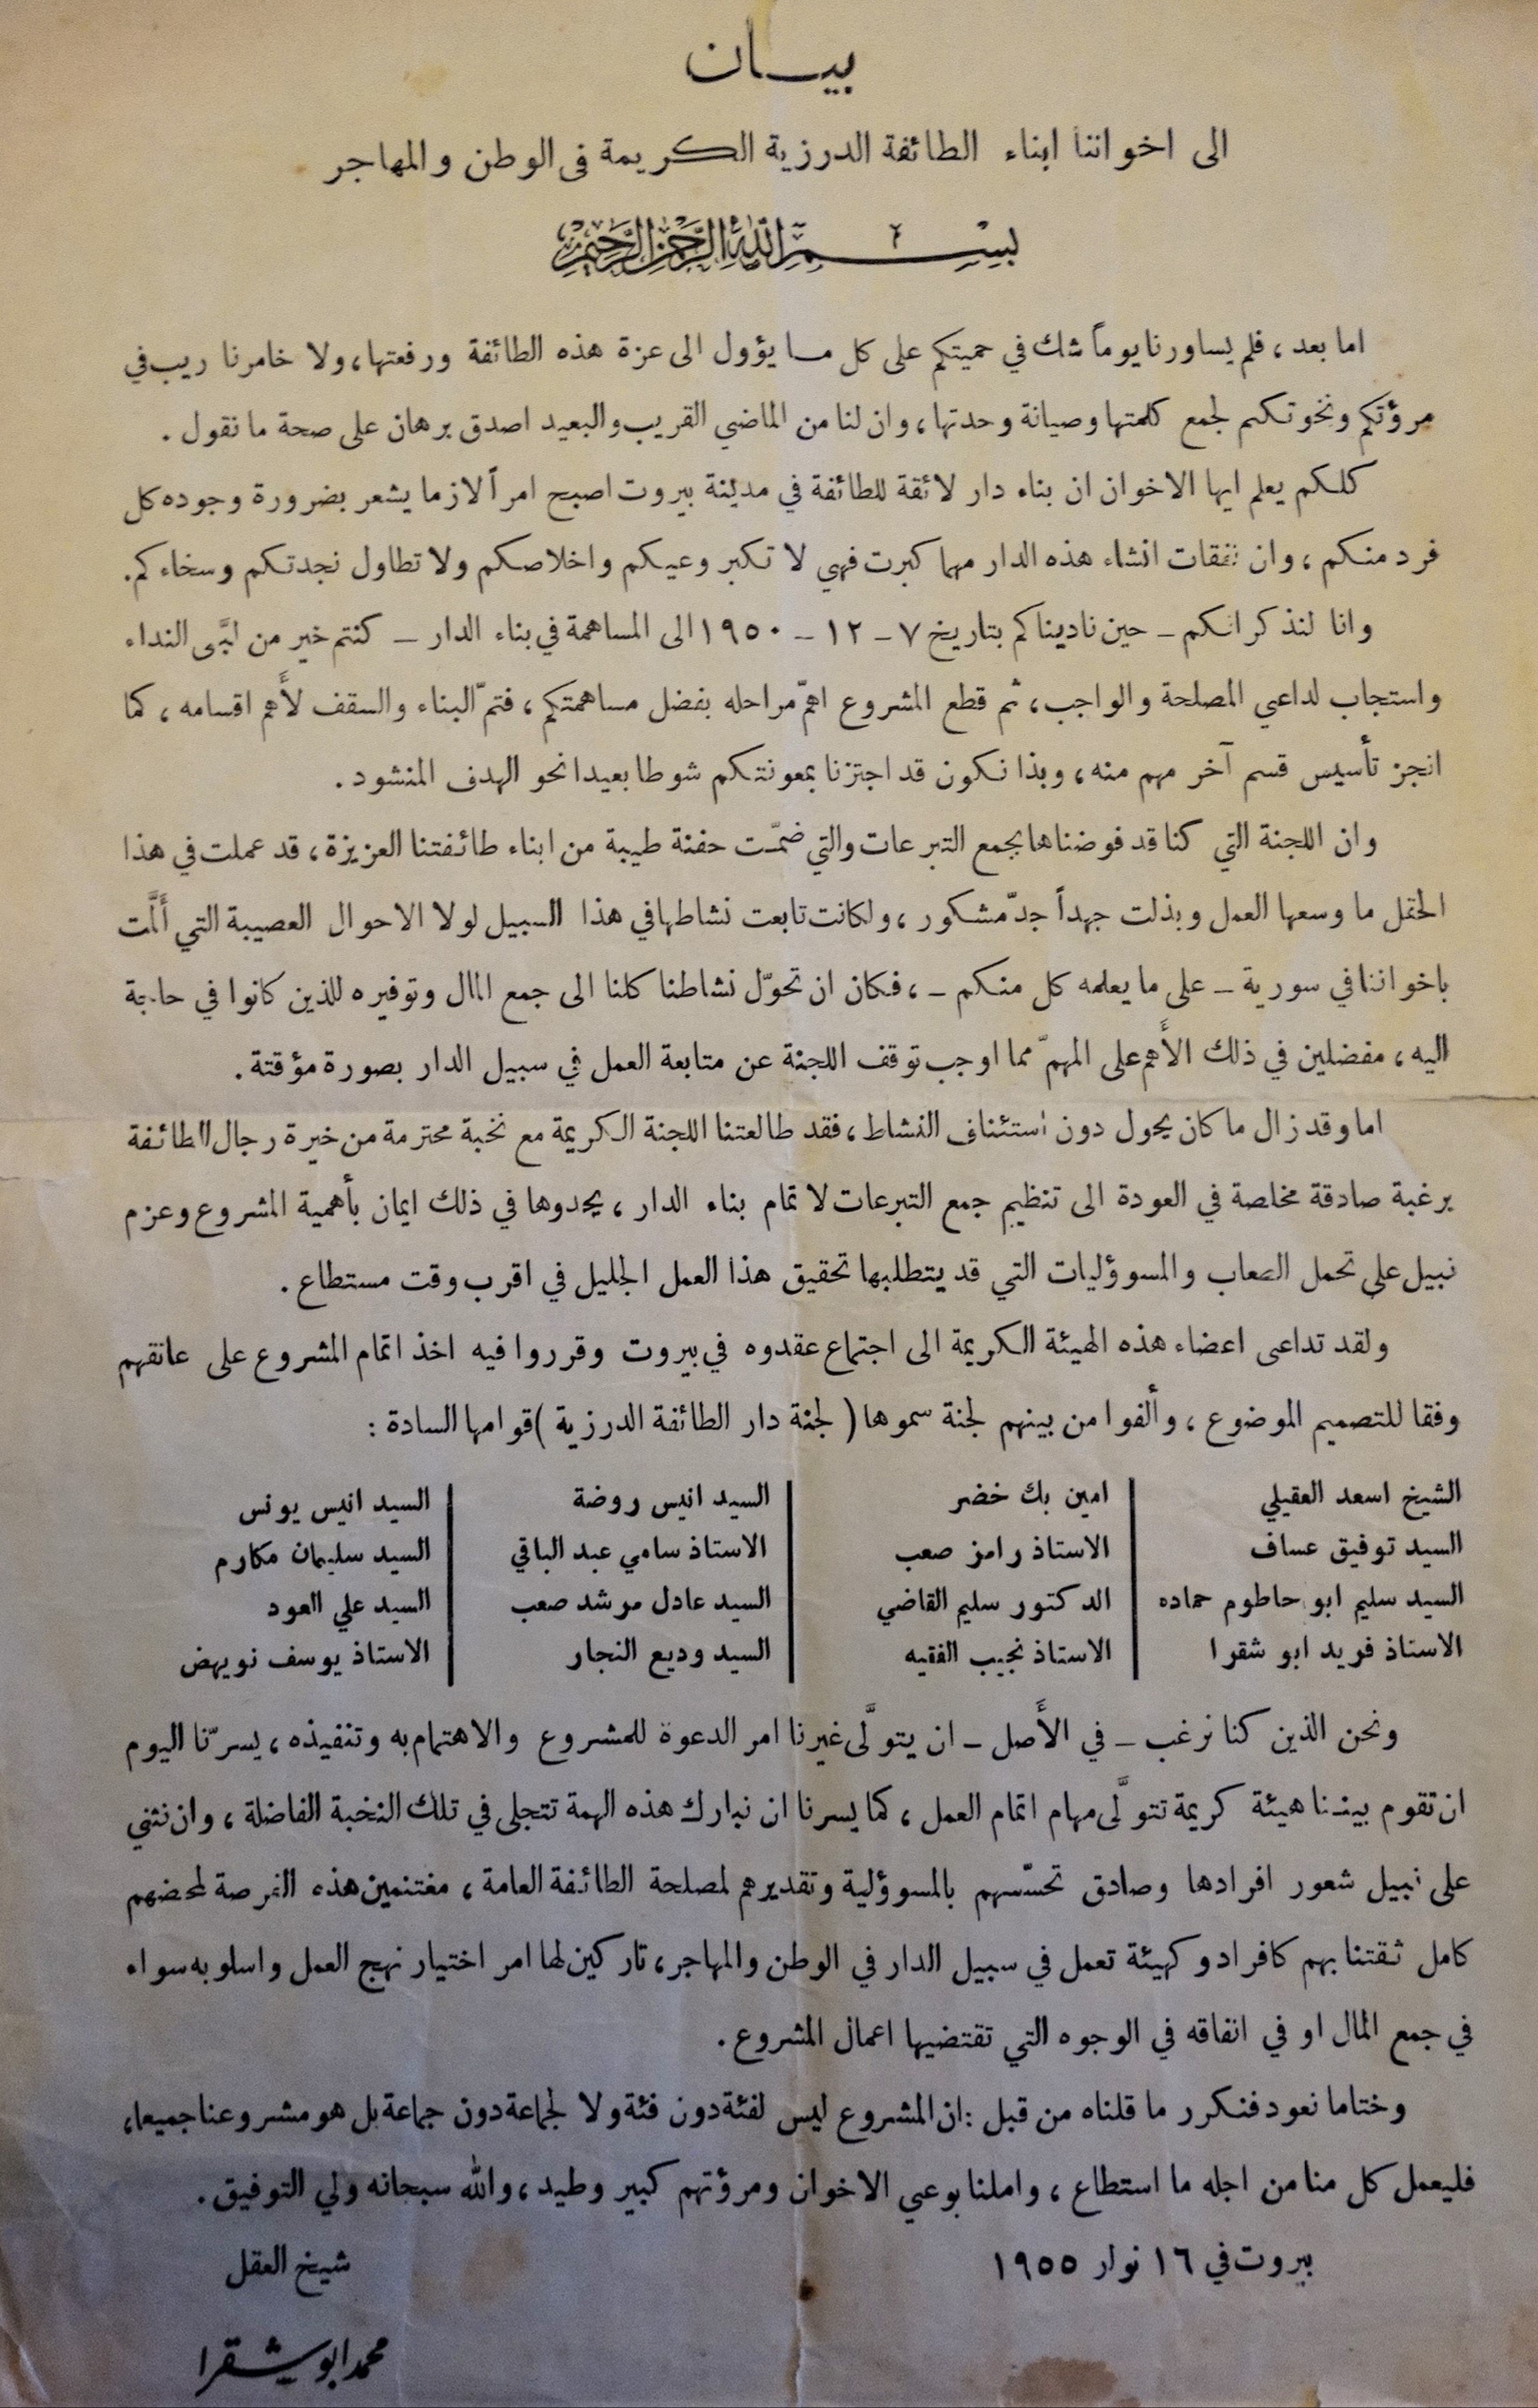 بيـــان
الى اخواننا ابناء الطائفة الدرزية الكريمة فى الوطن والمهاجر
بسم الله الرحمن الرحيم
اما بعد، فلم يساورنا يوماً شك في حميتكم على كل ما يؤول الى عزة هذه الطائفة ورفعتها، ولا خامرنا ريب في
مروؤتكم ونخوتكم لجمع كلمتها وصيانة وحدتها، وان لنا من الماضي القريب والبعيد اصدق برهان على صحة ما نقول.
كلكم يعلم ايها الاخوان ان بناء دار لائقة للطائفة في مدينة بيروت اصبح امراً لازما يشعر بضرورة وجوده كل
فرد منكم، وان نفقات انشاء هذه الدار مهما كبرت فهي لا تكبر وعيكم واخلاصكم ولا تطاول نجدتكم وسخاءكم.
وانا لنذكر انكم - حين ناديناكم بتاريخ ٧ - ١٢ - ١٩٥٠ الى المساهمة في بناء الدار - كنتم خير من لبَّى النداء
واستجاب لداعي المصلحة والواجب، ثم قطع المشروع اهمّ مراحله بفضل مساهمتكم، فتمّ البناء والسقف لأَهم اقسامه، كما
انجز تأسيس قسم آخر مهم منه، وبذا نكون قد اجتزنا بمعونتكم شوطا بعيدا نحو الهدف المنشود.
وان اللجنة التي كنا قد فوضناها بجمع التبرعات والتي ضمّت حفنة طيبة من ابناء طائفتنا العزيزة، قد عملت في هذا
الحقل ما وسعها العمل وبذلت جهداً جدّ مشكور، ولكانت تابعت نشاطها في هذا السبيل لولا الاحوال العصيبة التي أَلَّمت
باخواننا في سورية - على ما يعلمه كل منكم -، فكان ان تحوّل نشاطنا كلنا الى جمع المال وتوفيره للذين كانوا في حاجة
اليه، مفضلين في ذلك الأَهم على المهمّ مما اوجب توقف اللجنة عن متابعة العمل في سبيل الدار بصورة مؤقتة.
اما وقد زال ما كان يحول دون استئناف النشاط، فقد طالعتنا اللجنة الكريمة مع نخبة محترمة من خيرة رجال الطائفة
برغبة صادقة مخلصة في العودة الى تنظيم جمع التبرعات لاتمام بناء الدار، يحدوها في ذلك ايمان بأهمية المشروع وعزم
نبيل على تحمل الصعاب والمسوؤليات التي قد يتطلبها تحقيق هذا العمل الجليل في اقرب وقت مستطاع.
ولقد تداعى اعضاء هذه الهيئة الكريمة الى اجتماع عقدوه في بيروت وقرروا فيه اخذ اتمام المشروع على عاتقهم
وفقا للتصميم الموضوع، وألفوا من بينهم لجنة سموها ( لجنة دار الطائفة الدرزية ) قوامها السادة:
الشيخ اسعد العقيلي | امين بك خضر | السيد انيس روضة | السيد انيس يونس
السيد توفيق عساف | الاستاذ رامز صعب | الاستاذ سامي عبد الباقي | السيد سليمان مكارم
السيد سليم ابو حاطوم حماده | الدكتور سليم القاضي | السيد عادل مرشد صعب | السيد علي العود
الاستاذ فريد ابو شقرا | الاستاذ نجيب الفقيه | السيد وديع النجار | الاستاذ يوسف نويهض
ونحن الذين كنا نرغب - في الأَصل - ان يتولَّى غيرنا امر الدعوة للمشروع والاهتمام به وتنفيذه، يسرّنا اليوم
ان تقوم بيننا هيئة كريمة تتولَّى مهام اتمام العمل، كما يسرنا ان نبارك هذه الهمة تتجلى في تلك النخبة الفاضلة، وان نثني
على نبيل شعور افرادها وصادق تحسّسهم بالمسوؤلية وتقديرهم لمصلحة الطائفة العامة، مغتنمين هذه الفرصة لمحضهم
كامل ثقتنا بهم كافراد وكهيئة تعمل في سبيل الدار في الوطن والمهاجر، تاركين لها امر اختيار نهج العمل واسلوبه سواء
في جمع المال او في انفاقه في الوجوه التي تقتضيها اعمال المشروع.
وختاما نعود فنكرر ما قلناه من قبل : ان المشروع ليس لفئة دون فئة ولا لجماعة دون جماعة بل هو مشروعنا جميعا،
فليعمل كل منا من اجله ما استطاع، واملنا بوعي الاخوان ومروؤتهم كبير وطيد، والله سبحانه ولي التوفيق.
بيروت في ١٦ نوار ١٩٥٥
شيخ العقل
محمد ابو شقرا